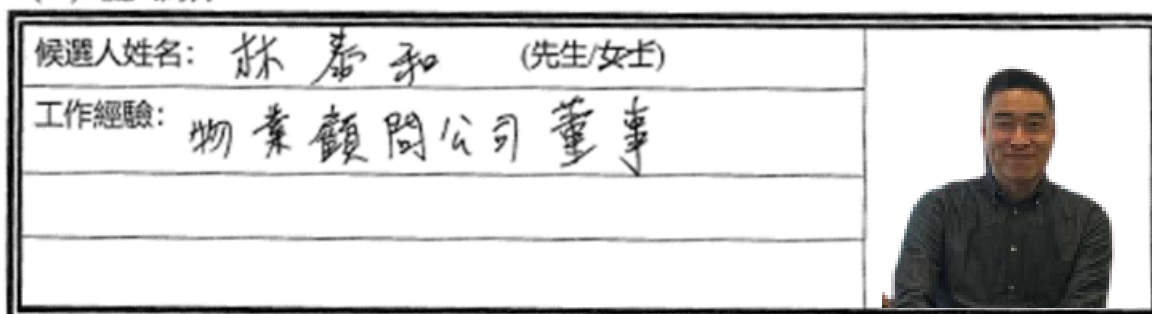 候選人姓名: 林泰和 (先生/女士)
工作經驗: 物業顧問公司董事